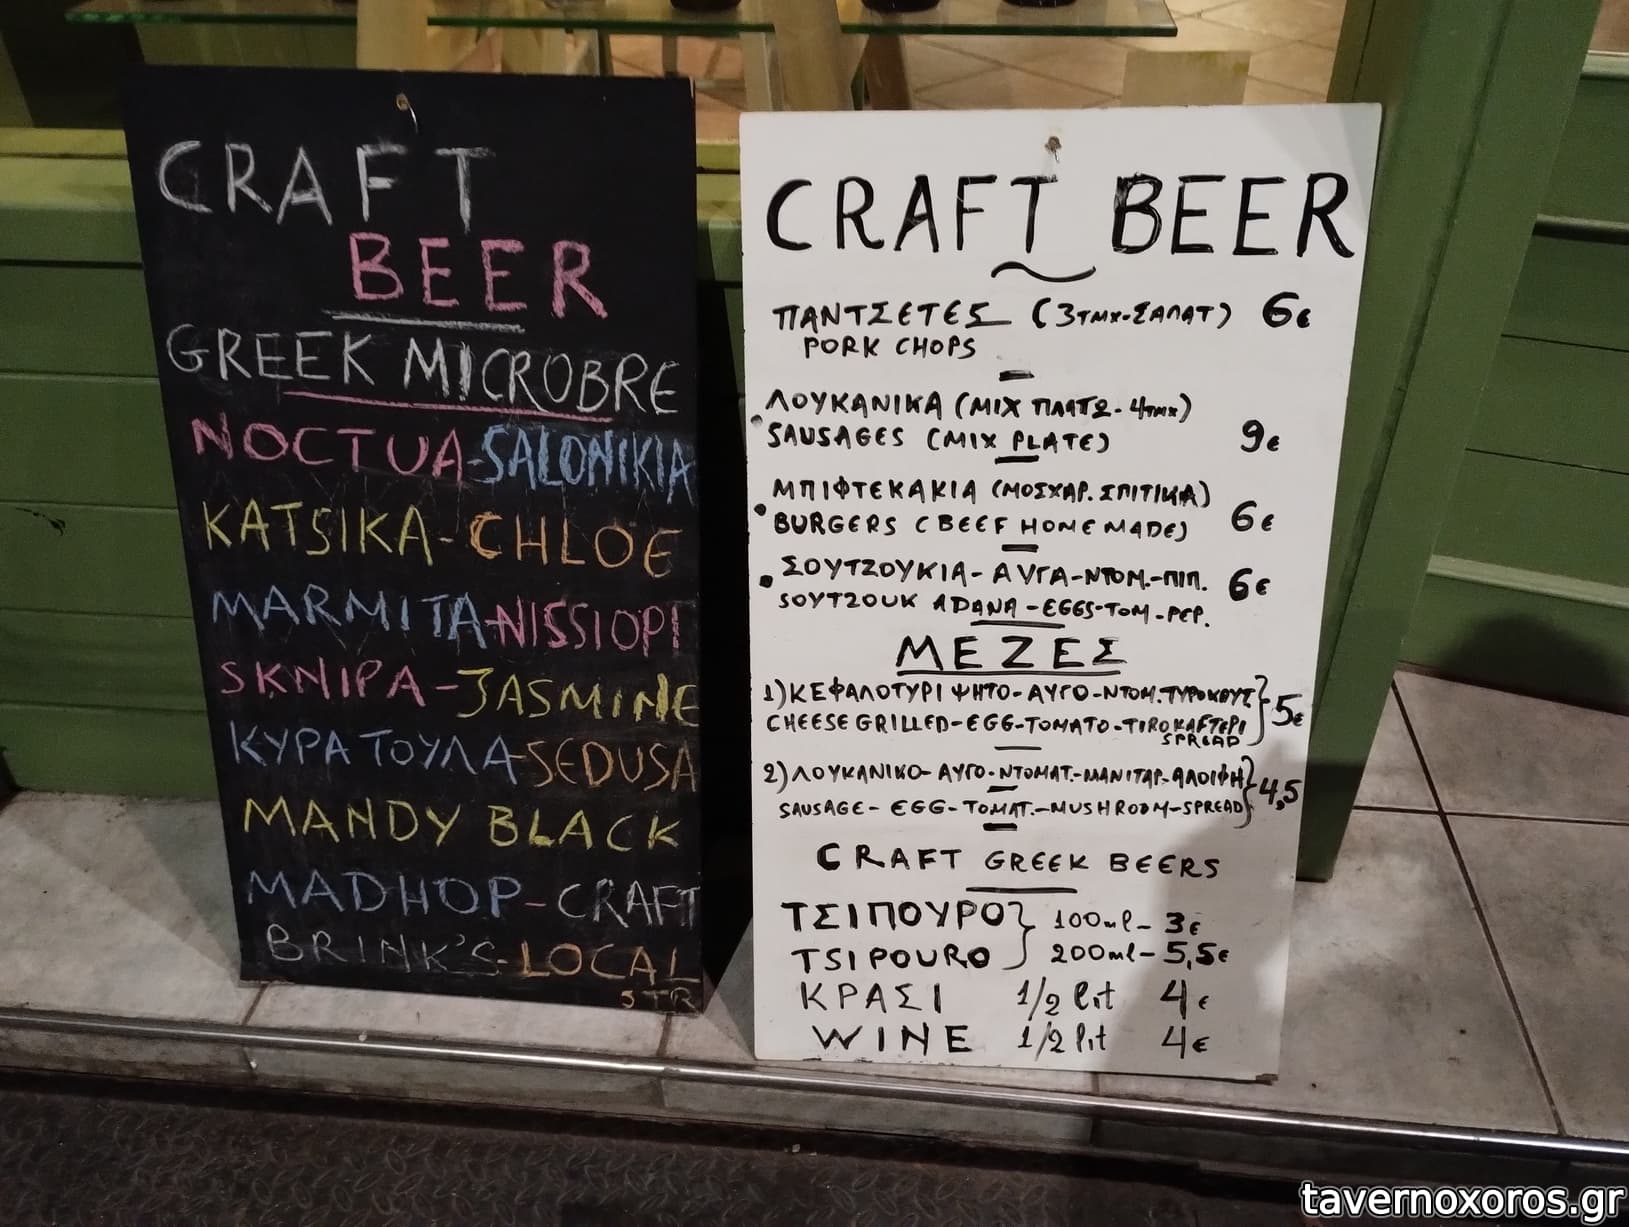 CRAFT
BEER
GREEK MICROBRE
NOCTUA-SALONIKIA
KATSIKA-CHLOE
MARMITA-NISSIOPI
SKNIPA-JASMINE
ΚΥΡΑ ΤΟΥΛΑ-SEDUSA
MANDY BLACK
MADHOP-CRAFT
BRINK'S-LOCAL
STR
CRAFT BEER
ΠΑΝΤΣΕΤΕΣ (3ΤΜΧ-ΣΑΛΑΤ) 6€
PORK CHOPS
ΛΟΥΚΑΝΙΚΑ (ΜΙΧ ΠΛΑΤΩ-4ΤΜΧ)
SAUSAGES (MIX PLATE) 9€
ΜΠΙΦΤΕΚΑΚΙΑ (ΜΟΣΧΑΡ. ΣΠΙΤΙΚΑ)
BURGERS (BEEF HOME MADE) 6€
• ΣΟΥΤΖΟΥΚΙΑ-ΑΥΓΑ-ΝΤΟΜ.-ΠΙΠ. 6€
SOYTZOUK ADANA-EGGS-TOM-PEP.
ΜΕΖΕΣ
1) ΚΕΦΑΛΟΤΥΡΙ ΨΗΤΟ-ΑΥΓΟ-ΝΤΟΜ. ΤΥΡΟΚΑΥΤ } 5€
CHEESE GRILLED-EGG-TOMATO-TIROKAFTERI
SPREAD
2) ΛΟΥΚΑΝΙΚΟ-ΑΥΓΟ-ΝΤΟΜΑΤ.-ΜΑΝΙΤΑΡ-ΑΛΟΙΦΗ } 4,5
SAUSAGE-EGG-TOMAT.-MUSHROOM-SPREAD
CRAFT GREEK BEERS
ΤΣΙΠΟΥΡΟ } 100ml-3€
TSIPOURO 200ml-5,5€
ΚΡΑΣΙ 1/2 lit 4€
WINE 1/2 lit 4€
tavernoxoros.gr